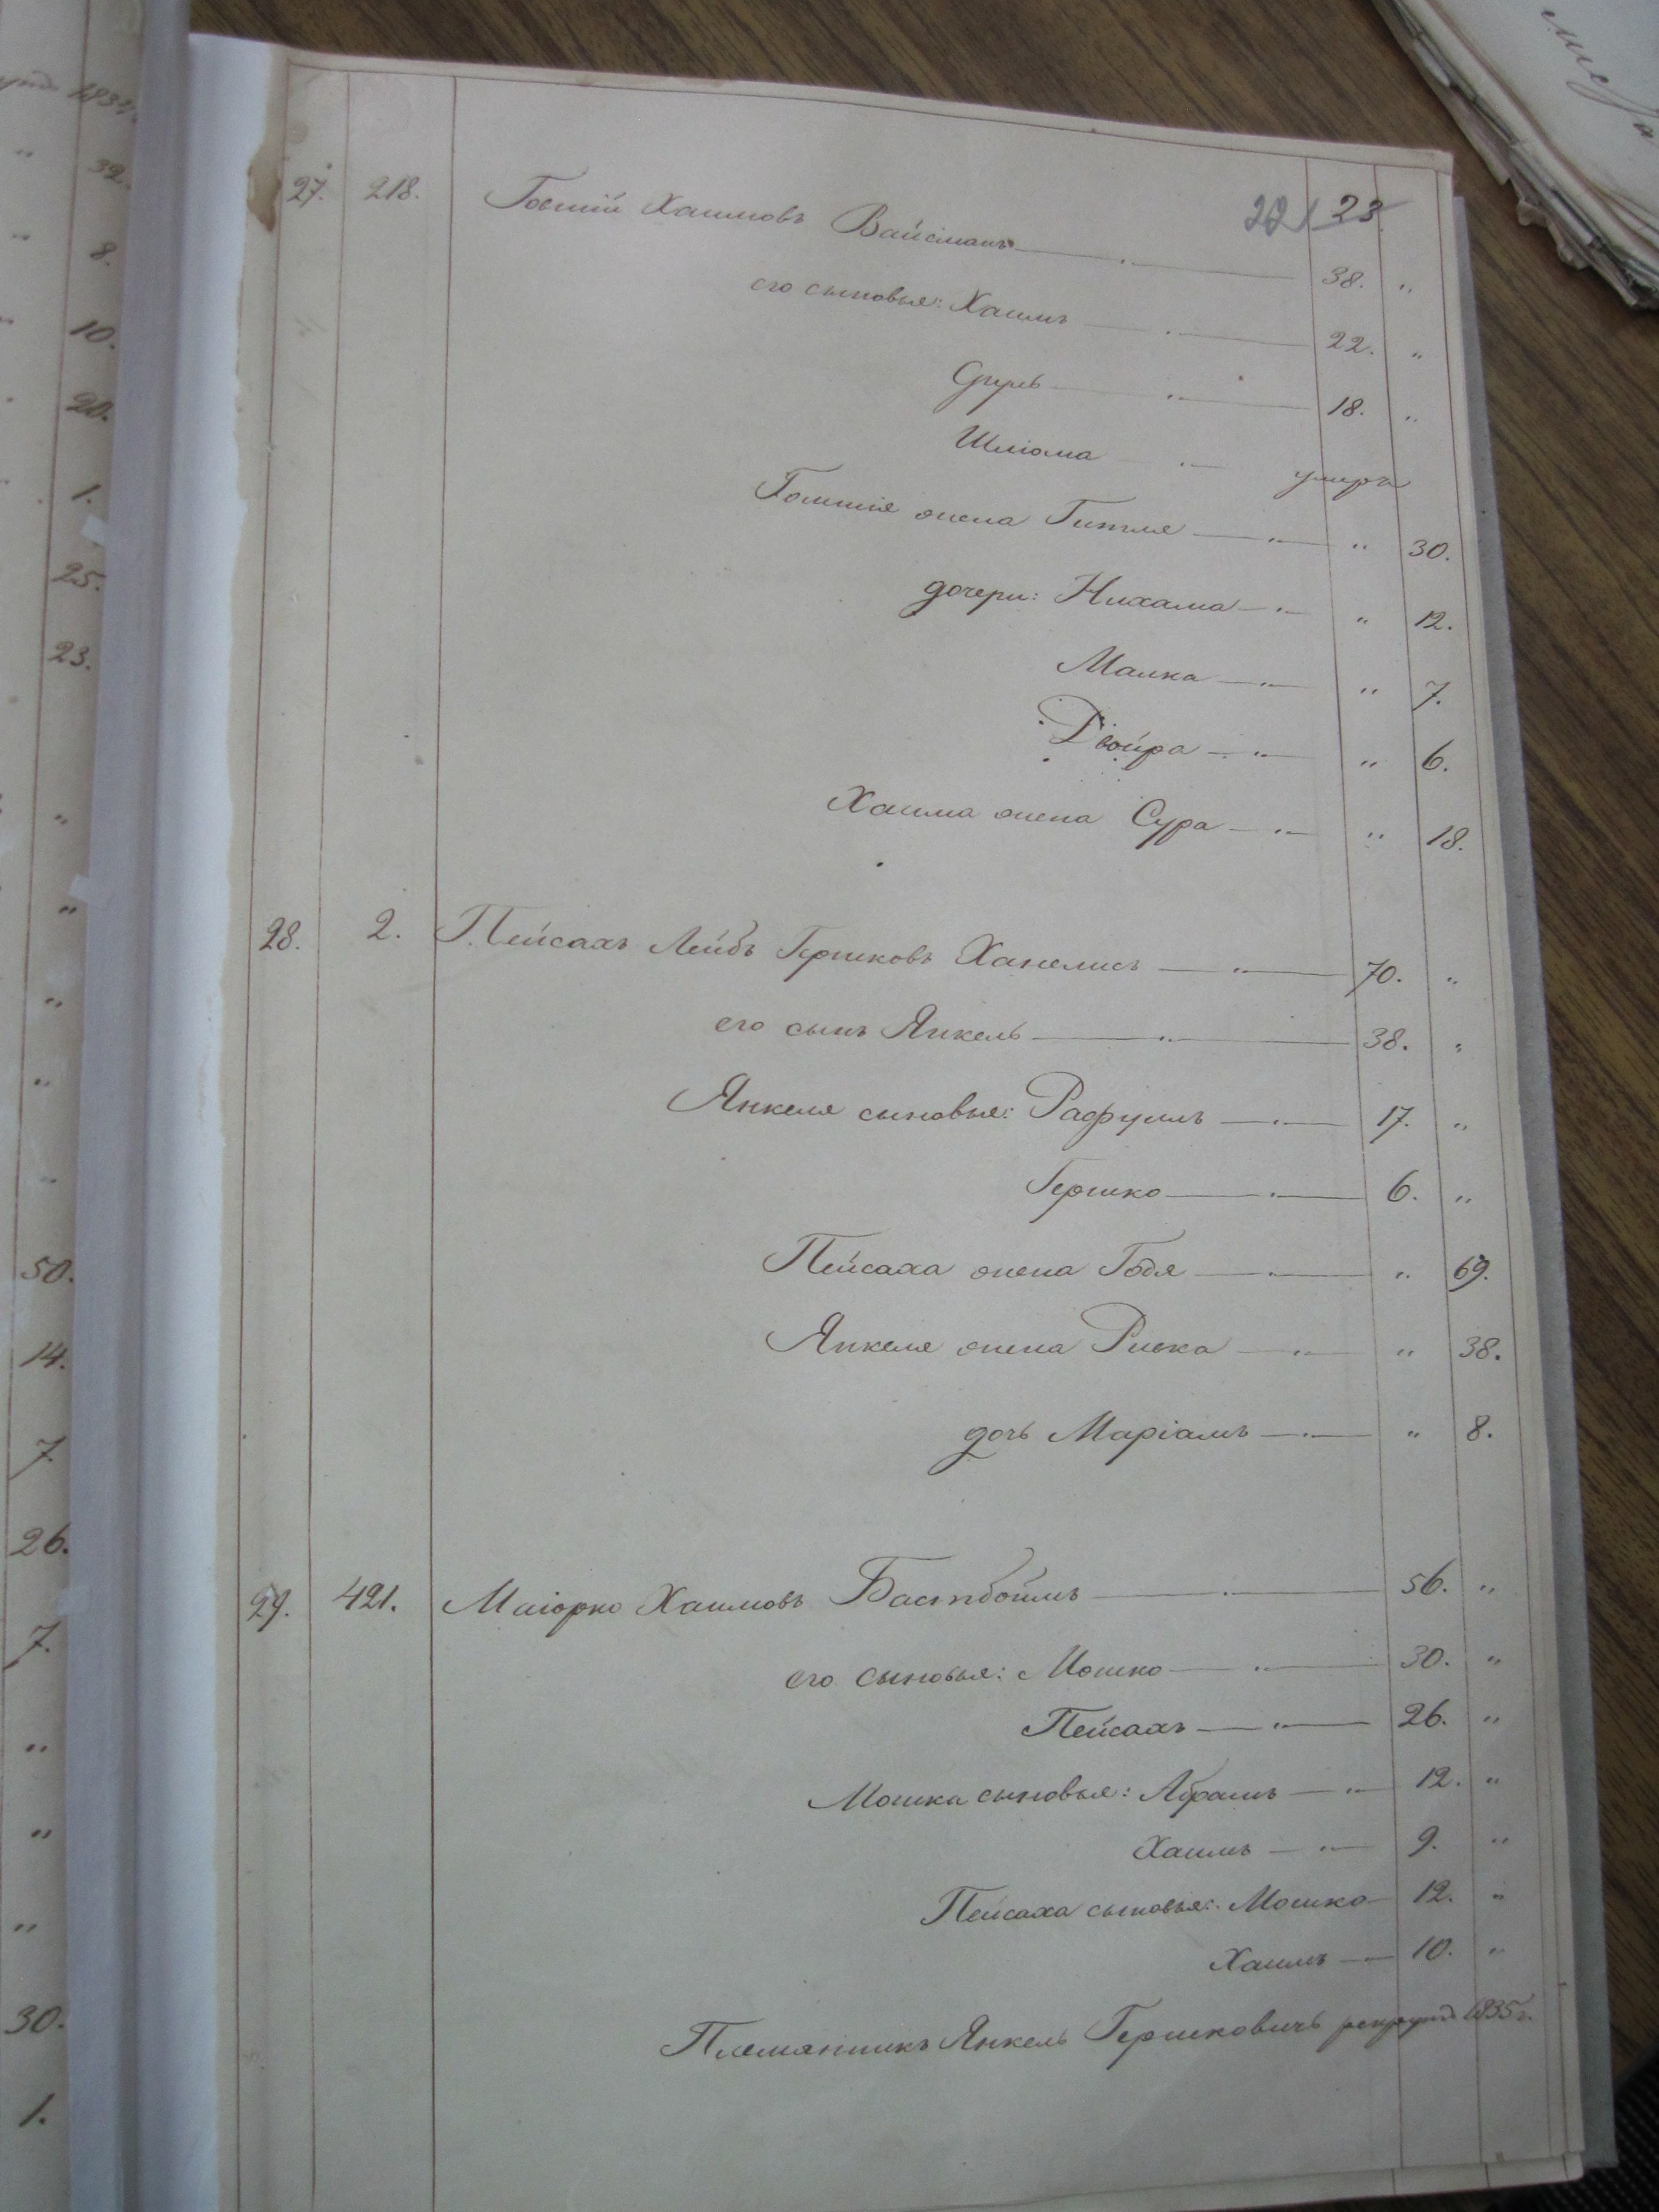 22 23
27. 218. Говшій Хаимовъ Вайсманъ 38. "
его сыновья: Хаимъ 22. "
Сруль 18. "
Шліома умеръ
Говшія жена Гитля " 30.
дочери: Нихама " 12.
Малка " 7.
Двойра " 6.
Хаима жена Сура " 18.
28. 2. Пейсахъ Лейбъ Гершковъ Ханелисъ 70. "
его сынъ Янкель 38. "
Янкеля сыновья: Рафуилъ 17. "
Гершко 6. "
Пейсаха жена Годя " 69.
Янкеля жена Ривка " 38.
дочь Маріамъ " 8.
29. 421. Маіорко Хаимовъ Бастбоимъ 56. "
его сыновья: Мошко 30. "
Пейсахъ 26. "
Мошка сыновья: Абрамъ 12. "
Хаимъ 9. "
Пейсаха сыновья: Мошко 12. "
Хаимъ 10. "
Племянникъ Янкель Гершковичъ рекрутъ 1835 г.
32.
8.
10.
20.
1.
25.
23.
"
"
"
"
"
50.
14.
7.
26.
7.
"
"
"
30.
1.